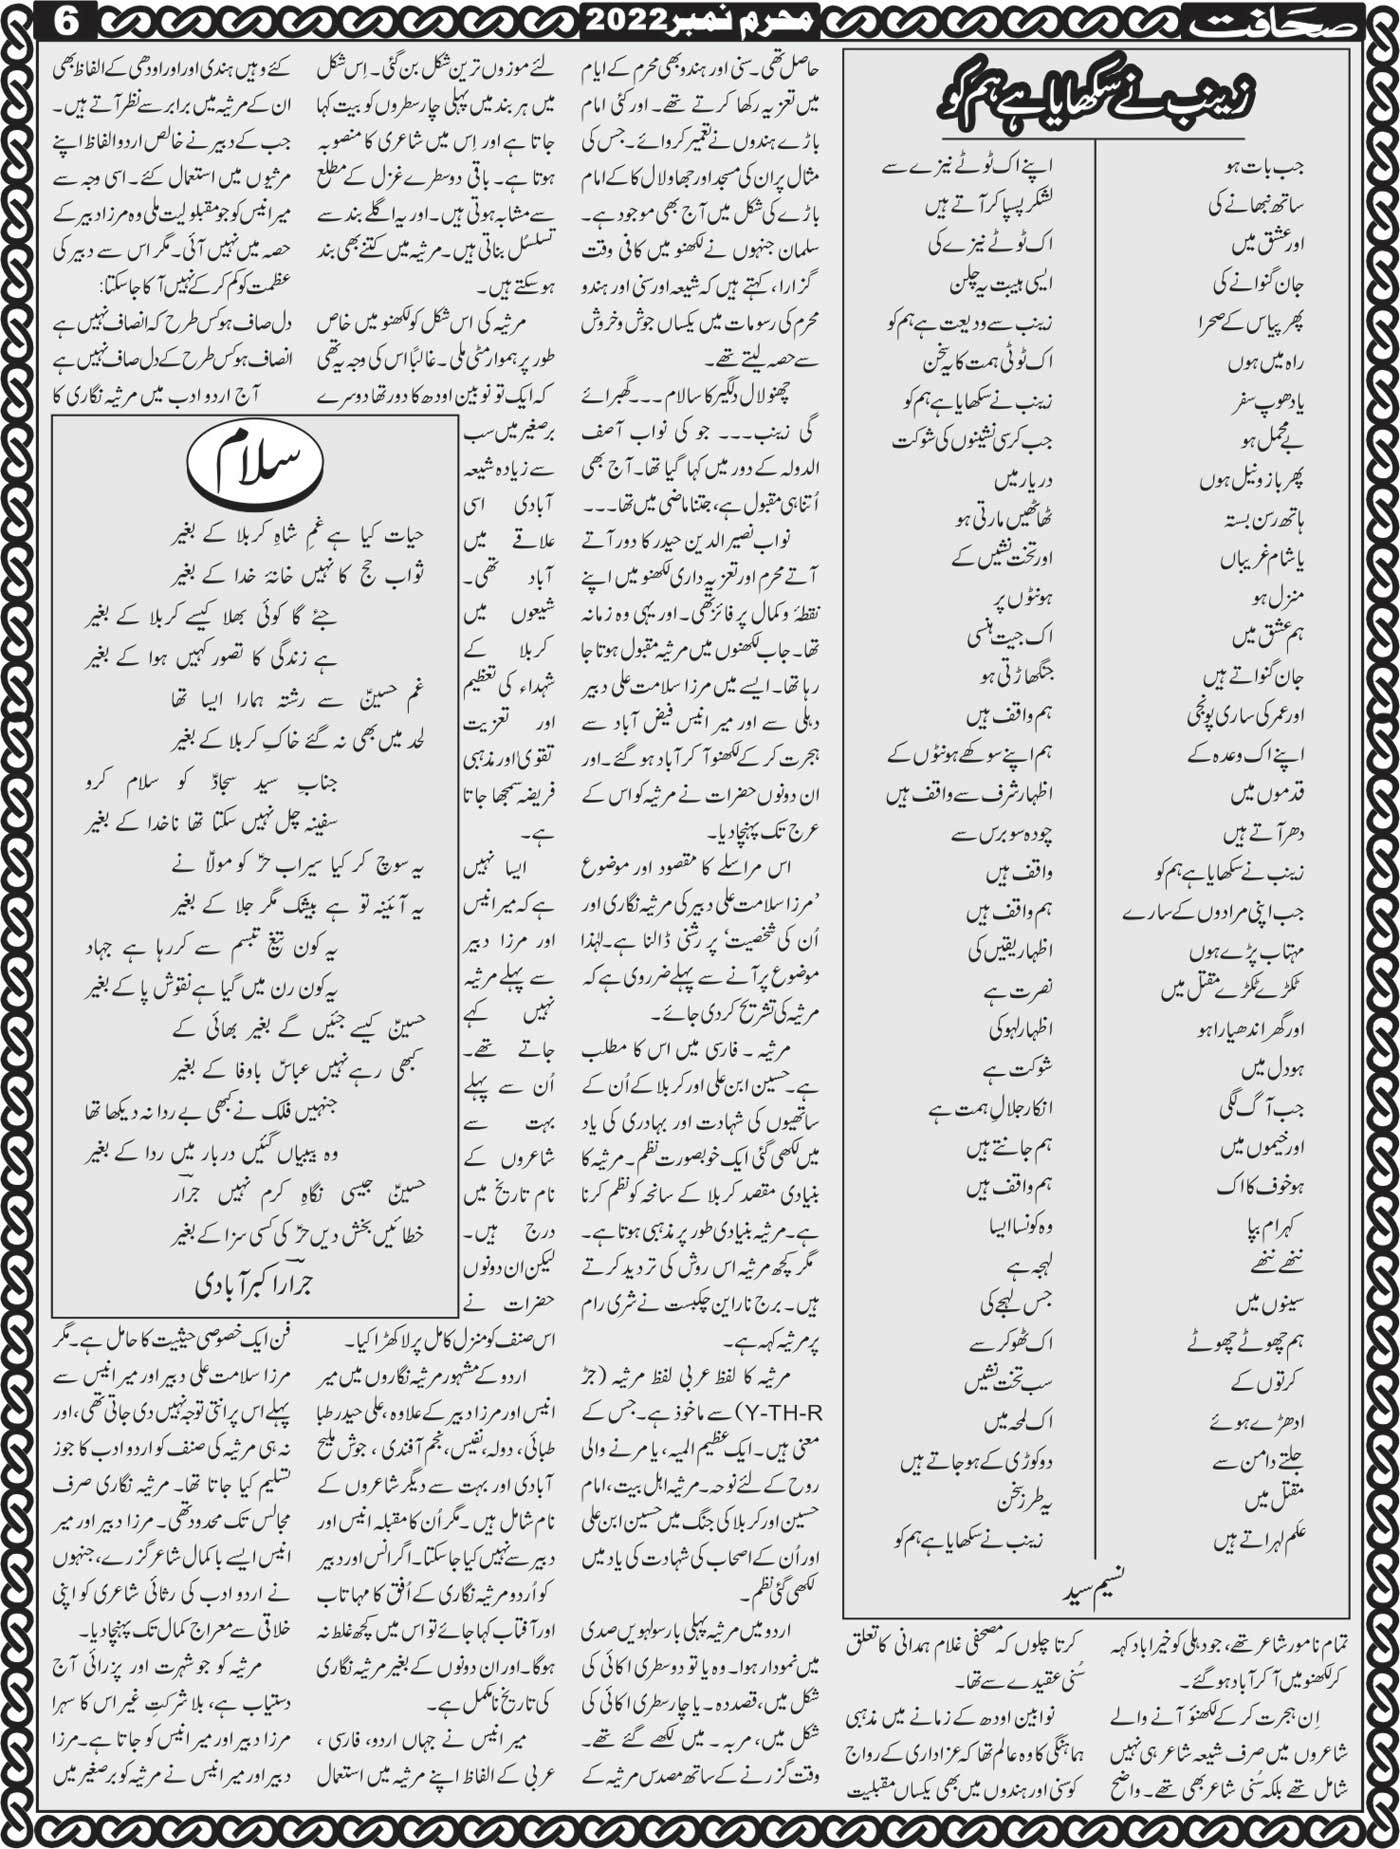 صحافت
محرم نمبر 2022
6
زینب نے سکھایا ہے ہم کو
جب بات ہو
ساتھ نبھانے کی
اور عشق میں
جان گنوانے کی
پھر پیاس کے صحرا
راہ میں ہوں
یا دھوپ سفر
بے محمل ہو
پھر بازو نیل ہوں
ہاتھ رسن بستہ
یا شام غریباں
منزل ہو
ہم عشق میں
جان گنواتے ہیں
اور عمر کی ساری پونجی
اپنے اک وعدہ کے
قدموں میں
دھر آتے ہیں
زینب نے سکھایا ہے ہم کو
جب اپنی مرادوں کے سارے
مہتاب پڑے ہوں
ٹکڑے ٹکڑے مقتل میں
اور گھر اندھیارا ہو
ہو دل میں
جب آگ لگی
اور خیموں میں
ہو خوف کا اک
کہرام بپا
ننھے ننھے
سینوں میں
ہم چھوٹے چھوٹے
کرتوں کے
ادھڑے ہوئے
جلتے دامن سے
مقتل میں
علم لہراتے ہیں
اپنے اک ٹوٹے نیزے سے
لشکر پسپا کر آتے ہیں
اک ٹوٹے نیزے کی
ایسی ہیبت یہ چلن
زینب سے ودیعت ہے ہم کو
اک ٹوٹی ہمت کا یہ سخن
زینب نے سکھایا ہے ہم کو
جب کرسی نشینوں کی شوکت
دربار میں
ٹھاٹھیں مارتی ہو
اور تخت نشیں کے
ہونٹوں پر
اک جیت ہنسی
جنگھاڑتی ہو
ہم واقف ہیں
ہم اپنے سوکھے ہونٹوں کے
اظہار شرف سے واقف ہیں
چودہ سو برس سے
واقف ہیں
ہم واقف ہیں
اظہار یقیں کی
نصرت ہے
اظہار لہو کی
شوکت ہے
انکار جلالِ ہمت ہے
ہم جانتے ہیں
ہم واقف ہیں
وہ کونسا ایسا
لہجہ ہے
جس لہجے کی
اک ٹھوکر سے
سب تخت نشیں
اک لمحہ میں
دو کوڑی کے ہو جاتے ہیں
یہ طرز سخن
زینب نے سکھایا ہے ہم کو
نسیم سید
تمام نامور شاعر تھے، جو دہلی کو خیرا باد کہہ
کر لکھنو میں آ کر آباد ہو گئے۔
اِن ہجرت کر کے لکھنؤ آنے والے
شاعروں میں صرف شیعہ شاعر ہی نہیں
شامل تھے بلکہ سُنی شاعر بھی تھے۔ واضح
کرتا چلوں کہ مصحفی غلام ہمدانی کا تعلق
سُنی عقیدے سے تھا۔
نوابین اودھ کے زمانے میں مذہبی
ہماہنگی کا وہ عالم تھا کہ عزاداری کے رواج
کو سنی اور ہندوں میں بھی یکساں مقبلیت
حاصل تھی۔ سنی اور ہندو بھی محرم کے ایام
میں تعزیہ رکھا کرتے تھے۔ اور کئی امام
باڑے ہندوں نے تعمیر کروائے۔ جس کی
مثال پران کی مسجد اور جھاولال کا کے امام
باڑے کی شکل میں آج بھی موجود ہے۔
سلمان جنہوں نے لکھنو میں کافی وقت
گزارا، کہتے ہیں کہ شیعہ اور سنی اور ہندو
محرم کی رسومات میں یکساں جوش و خروش
سے حصہ لیتے تھے۔
چھنو لال دلگیر کا سالام ۔۔۔ گھبرائے
گی زینب ۔۔۔ جو کی نواب آصف
الدولہ کے دور میں کہا گیا تھا۔ آج بھی
اُتنا ہی مقبول ہے، جتنا ماضی میں تھا ۔۔۔
نواب نصیر الدین حیدر کا دور آتے
آتے محرم اور تعزیہ داری لکھنو میں اپنے
نقطۂ و کمال پر فائز تھی۔ اور یہی وہ زمانہ
تھا۔ جاب لکھنوں میں مرثیہ مقبول ہوتا جا
رہا تھا۔ ایسے میں مرزا سلامت علی دبیر
دہلی سے اور میر انیس فیض آباد سے
ہجرت کر کے لکھنو آ کر آباد ہو گئے۔ اور
ان دونوں حضرات نے مرثیہ کو اس کے
عرج تک پہنچا دیا۔
اس مراسلے کا مقصود اور موضوع
’مرزا سلامت علی دبیر کی مرثیہ نگاری اور
اُن کی شخصیت‘ پر رشنی ڈالنا ہے۔ لہٰذا
موضوع پر آنے سے پہلے ضروری ہے کہ
مرثیہ کی تشریح کر دی جائے۔
مرثیہ ۔ فارسی میں اس کا مطلب
ہے۔ حسین ابن علی اور کربلا کے اُن کے
ساتھیوں کی شہادت اور بہادری کی یاد
میں لکھی گئی ایک خوبصورت نظم۔ مرثیہ کا
بنیادی مقصد کربلا کے سانحہ کو نظم کرنا
ہے۔ مرثیہ بنیادی طور پر مذہبی ہوتا ہے۔
مگر کچھ مرثیہ اس روش کی تردید کرتے
ہیں۔ برج ناراین چکبست نے شری رام
پر مرثیہ کہہ ہے۔
مرثیہ کا لفظ عربی لفظ مرثیہ (جڑ
Y-TH-R) سے ماخوذ ہے۔ جس کے
معنی ہیں۔ ایک عظیم المیہ، یا مرنے والی
روح کے لئے نوحہ۔ مرثیہ اہل بیت، امام
حسین اور کربلا کی جنگ میں حسین ابن علی
اور اُن کے اصحاب کی شہادت کی یاد میں
لکھی گئی نظم۔
اردو میں مرثیہ پہلی بار سولہویں صدی
میں نمودار ہوا۔ وہ یا تو دو سطری اکائی کی
شکل میں، قصددہ۔ یا چار سطری اکائی کی
شکل میں، مربہ۔ میں لکھے گئے تھے۔
وقت گزرنے کے ساتھ مصدس مرثیہ کے
لئے موزوں ترین شکل بن گئی۔ اِس شکل
میں ہر بند میں پہلی چار سطروں کو بیت کہا
جاتا ہے اور اِس میں شاعری کا منصوبہ
ہوتا ہے۔ باقی دو سطرے غزل کے مطلع
سے مشابہ ہوتی ہیں۔ اور یہ اگلے بند سے
تسلسُل بناتی ہیں۔ مرثیہ میں کتنے بھی بند
ہو سکتے ہیں۔
مرثیہ کی اس شکل کو لکھنو میں خاص
طور پر ہموار مٹی ملی۔ غالباً اس کی وجہ یہ تھی
کہ ایک تو نوبین اودھ کا دور تھا دوسرے
برصغیر میں سب
سے زیادہ شیعہ
آبادی اسی
علاقے میں
آباد تھی۔
شیعوں میں
کربلا کے
شہداء کی تعظیم
اور تعزیت
تقوی اور مذہبی
فریضہ سمجھا جاتا
ہے۔
ایسا نہیں
ہے کہ میر انیس
اور مرزا دبیر
سے پہلے مرثیہ
نہیں کہے
جاتے تھے۔
اُن سے پہلے
بہت سے
شاعروں کے
نام تاریخ میں
درج ہیں۔
لیکن ان دونوں
حضرات نے
اس صنف کو منزل کامل پر لا کھڑا کیا۔
اردو کے مشہور مرثیہ نگاروں میں میر
انیس اور مرزا دبیر کے علاوہ، علی حیدر طبا
طبائی، دولہ، نفیس، نجم آفندی، جوش ملیح
آبادی اور بہت سے دیگر شاعروں کے
نام شامل ہیں۔ مگر اُن کا مقبلہ انیس اور
دبیر سے نہیں کیا جا سکتا۔ اگر انس اور دبیر
کو اُردو مرثیہ نگاری کے اُفق کا مہاتاب
اور آفتاب کہا جائے تو اس میں کچھ غلط نہ
ہوگا۔ اور ان دونوں کے بغیر مرثیہ نگاری
کی تاریخ نا مکمل ہے۔
میر انیس نے جہاں اردو، فارسی،
عربی کے الفاظ اپنے مرثیہ میں استعمال
کئے وہیں ہندی اور اور اودھی کے الفاظ بھی
ان کے مرثیہ میں برابر سے نظر آتے ہیں۔
جب کے دبیر نے خالص اردو الفاظ اپنے
مرثیوں میں استعمال کئے۔ اسی وجہ سے
میر انیس کو جو مقبولیت ملی وہ مرزا دبیر کے
حصہ میں نہیں آئی۔ مگر اس سے دبیر کی
عظمت کو کم کر کے نہیں آ کا جا سکتا:
دل صاف ہو کس طرح کہ انصاف نہیں ہے
انصاف ہو کس طرح کے دل صاف نہیں ہے
آج اردو ادب میں مرثیہ نگاری کا
سلام
حیات کیا ہے غمِ شاہِ کربلا کے بغیر
ثواب حج کا نہیں خانۂ خدا کے بغیر
جئے گا کوئی بھلا کیسے کربلا کے بغیر
ہے زندگی کا تصور کہیں ہوا کے بغیر
غم حسینؑ سے رشتہ ہمارا ایسا تھا
لحد میں بھی نہ گئے خاکِ کربلا کے بغیر
جناب سید سجادؑ کو سلام کرو
سفینہ چل نہیں سکتا تھا ناخدا کے بغیر
یہ سوچ کر کیا سیراب حرؑ کو مولاؑ نے
یہ آئینہ تو ہے بیشک مگر جلا کے بغیر
یہ کون تیغ تبسم سے کر رہا ہے جہاد
یہ کون رن میں گیا ہے نقوش پا کے بغیر
حسینؑ کیسے جئیں گے بغیر بھائی کے
کبھی رہے نہیں عباسؑ باوفا کے بغیر
جنہیں فلک نے کبھی بے ردا نہ دیکھا تھا
وہ بیبیاں گئیں دربار میں ردا کے بغیر
حسینؑ جیسی نگاہِ کرم نہیں جرار
خطائیں بخش دیں حرؑ کی کسی سزا کے بغیر
جرار اکبرآبادی
فن ایک خصوصی حیثیت کا حامل ہے۔ مگر
مرزا سلامت علی دبیر اور میر انیس سے
پہلے اس پر اتنی توجہ نہیں دی جاتی تھی، اور
نہ ہی مرثیہ کی صنف کو اردو ادب کا جوز
تسلیم کیا جاتا تھا۔ مرثیہ نگاری صرف
مجالس تک محدود تھی۔ مرزا دبیر اور میر
انیس ایسے با کمال شاعر گزرے، جنہوں
نے اردو ادب کی رثائی شاعری کو اپنی
خلاقی سے معراج کمال تک پہنچا دیا۔
مرثیہ کو جو شہرت اور پزرائی آج
دستیاب ہے، بلا شرکتِ غیر اس کا سہرا
مرزا دبیر اور میر انیس کو جاتا ہے۔ مرزا
دبیر اور میر انیس نے مرثیہ کو برصغیر میں